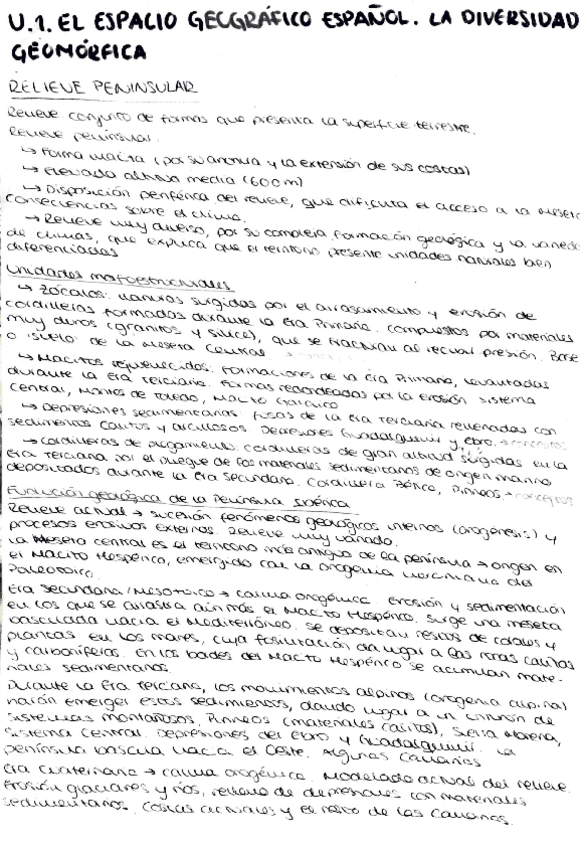 U.1. EL ESPACIO GEOGRÁFICO ESPAÑOL. LA DIVERSIDAD
GEOMÓRFICA
RELIEVE PENINSULAR
Relieve conjunto de formas que presenta la superficie terrestre.
Relieve peninsular.
↳ Forma maciza (por su anchura y la extensión de sus costas)
↳ Elevada altitud media (600m)
↳ Disposición periférica del relieve, que dificulta el acceso a la Meseta
consecuencias sobre el clima.
↳ Relieve muy diverso, por su compleja formación geológica y la varied
de climas, que explica que el territorio presente unidades naturales bien
diferenciadas
Unidades morfoestructurales
↳ Zócalos: llanuras surgidas por el arrasamiento y erosión de
cordilleras formadas durante la Era Primaria. Compuestos por materiales
muy duros (granitos y sílice), que se fracturan al recibir presión. Base
o suelo de la Meseta Central
↳ Macizos rejuvenecidos: formaciones de la Era Primaria, levantadas
durante la era terciaria. Formas redondeadas por la erosión sistema
Central, Montes de Toledo, Macizo Galaico
↳ Depresiones sedimentarias: fosas de la era terciaria rellenadas con
sedimentos calizos y arcillosos Depresiones Guadalquivir y Ebro.
↳ Cordilleras de plegamiento: cordilleras de gran altitud surgidas en la
era terciaria por el pliegue de los materiales sedimentarios de origen marino
depositados durante la era secundaria. Cordillera Bética, Pirineos
Evolución geológica de la Península Ibérica
Relieve actual → sucesión fenómenos geológicos internos (orogénesis) y
procesos erosivos externos. Relieve muy variado.
La Meseta central es el territorio más antiguo de la península → origen en
el Macizo Hespérico, emergido con la orogenia herciniana del
Paleozoico.
Era Secundaria/Mesozoico → calma orogénica Erosión y sedimentación
en los que se arrastra aún más el Macizo Hespérico. Surge una meseta
basculada hacia el Mediterráneo. Se depositan restos de corales y
plantas en los mares, cuya fosilización da lugar a las rocas calizas
y carboníferas. En los bordes del Macizo Hespérico se acumulan mate-
riales sedimentarios.
Durante la Era Terciaria, los movimientos alpinos (orogenia alpina)
harán emerger estos sedimentos, dando lugar a un cinturón de
sistemas montañosos. Pirineos (materiales calizos), Sierra Morena,
Sistema Central. Depresiones del Ebro y Guadalquivir. La
península bascula hacia el Oeste. Algunas Canarias
Era Cuaternaria → calma orogénica. Modelado actual del relieve.
Erosión glaciares y ríos, relleno de depresiones con materiales
sedimentarios. Costas actuales y el resto de las Canarias.